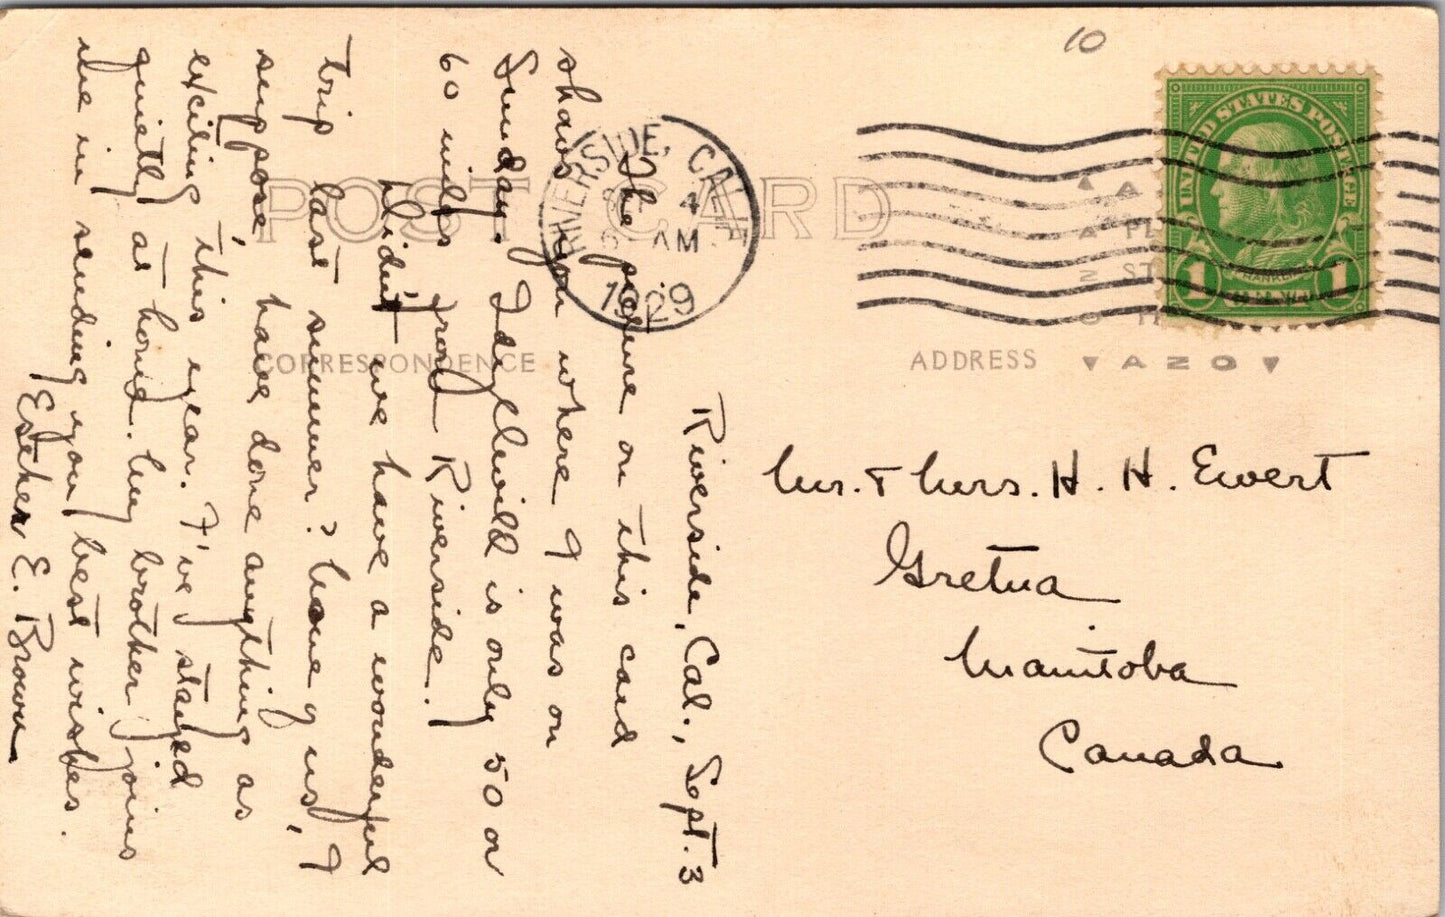 10
POST CARD
RIVERSIDE, CALIF.
4
AM
1929
UNITED STATES POSTAGE
1 1
CORRESPONDENCE
ADDRESS
AZO
Riverside, Cal., Sept. 3
The picture on this card
shows you where I was on
Sunday. Idyllwild is only 50 or
60 miles from Riverside.
Didn't we have a wonderful
trip last summer? None of us, I
suppose, have done anything as
exciting this year. I've stayed
quietly at home. My brother joins
me in sending you best wishes.
Esther E. Brown
Mr. & Mrs. H. H. Ewert
Gretna
Manitoba
Canada